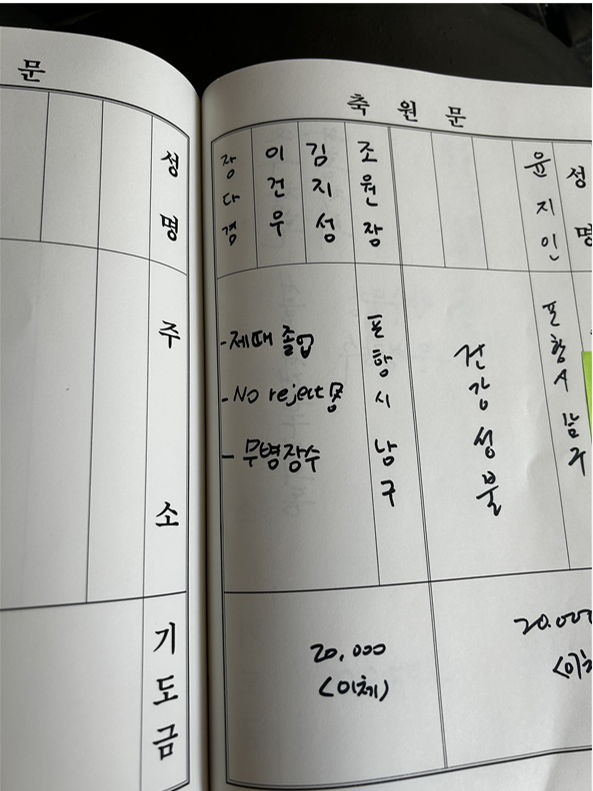 문
성명
주소
기도금
축원문
성명
윤지인
포항시 남구
건강성불
20.000
<이체
조원장
김지성
이건우
장다겸
포항시 남구
-제때 졸업
-No reject
- 무병장수
20,000
<이체)